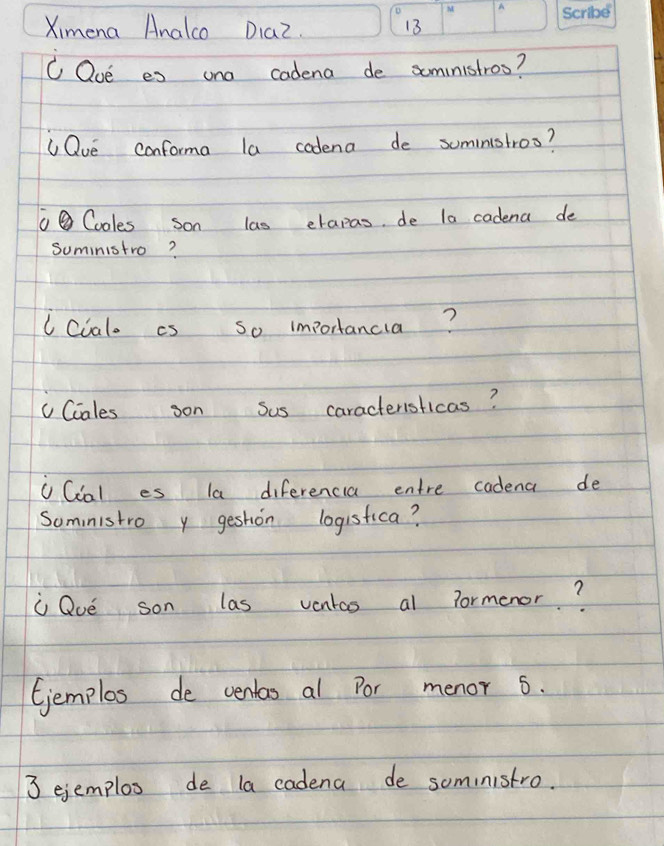 Ximena Analco Diaz. D 13 M A Scribe
¿Qué es una cadena de suministros?
¿Qué conforma la cadena de suministros?
¿Cuales son las etapas. de la cadena de
suministro ?
¿Cúal. es su importancia ?
¿Cúales son sus caracteristicas ?
¿Cúal es la diferencia entre cadena de
suministro y gestión logistica?
¿Qué son las ventas al Pormenor. ?
Ejemplos de ventas al Por menor 5.
3 ejemplos de la cadena de suministro.